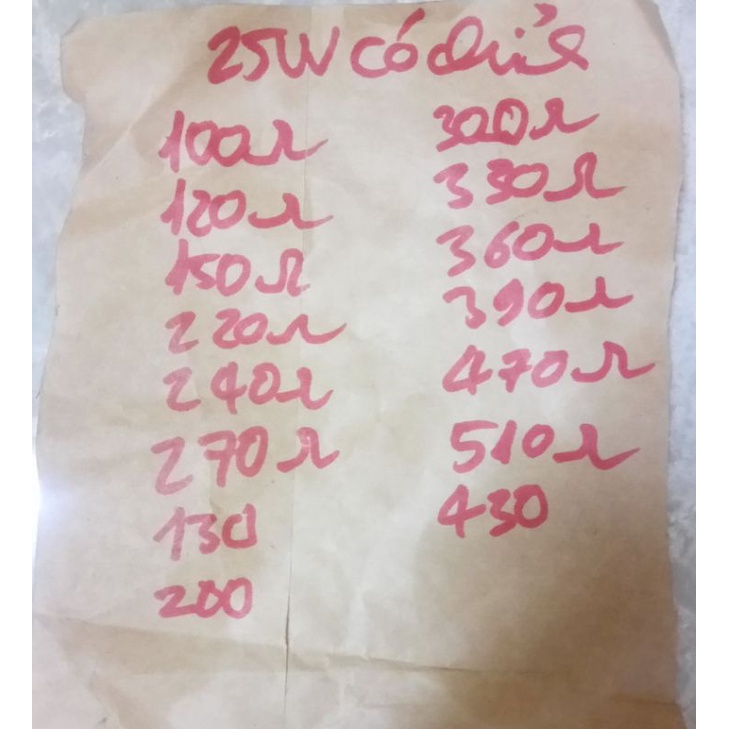 25W có chỉnh
100Ω
120Ω
150Ω
220Ω
240Ω
270Ω
130
200
300Ω
330Ω
360Ω
390Ω
470Ω
510Ω
430